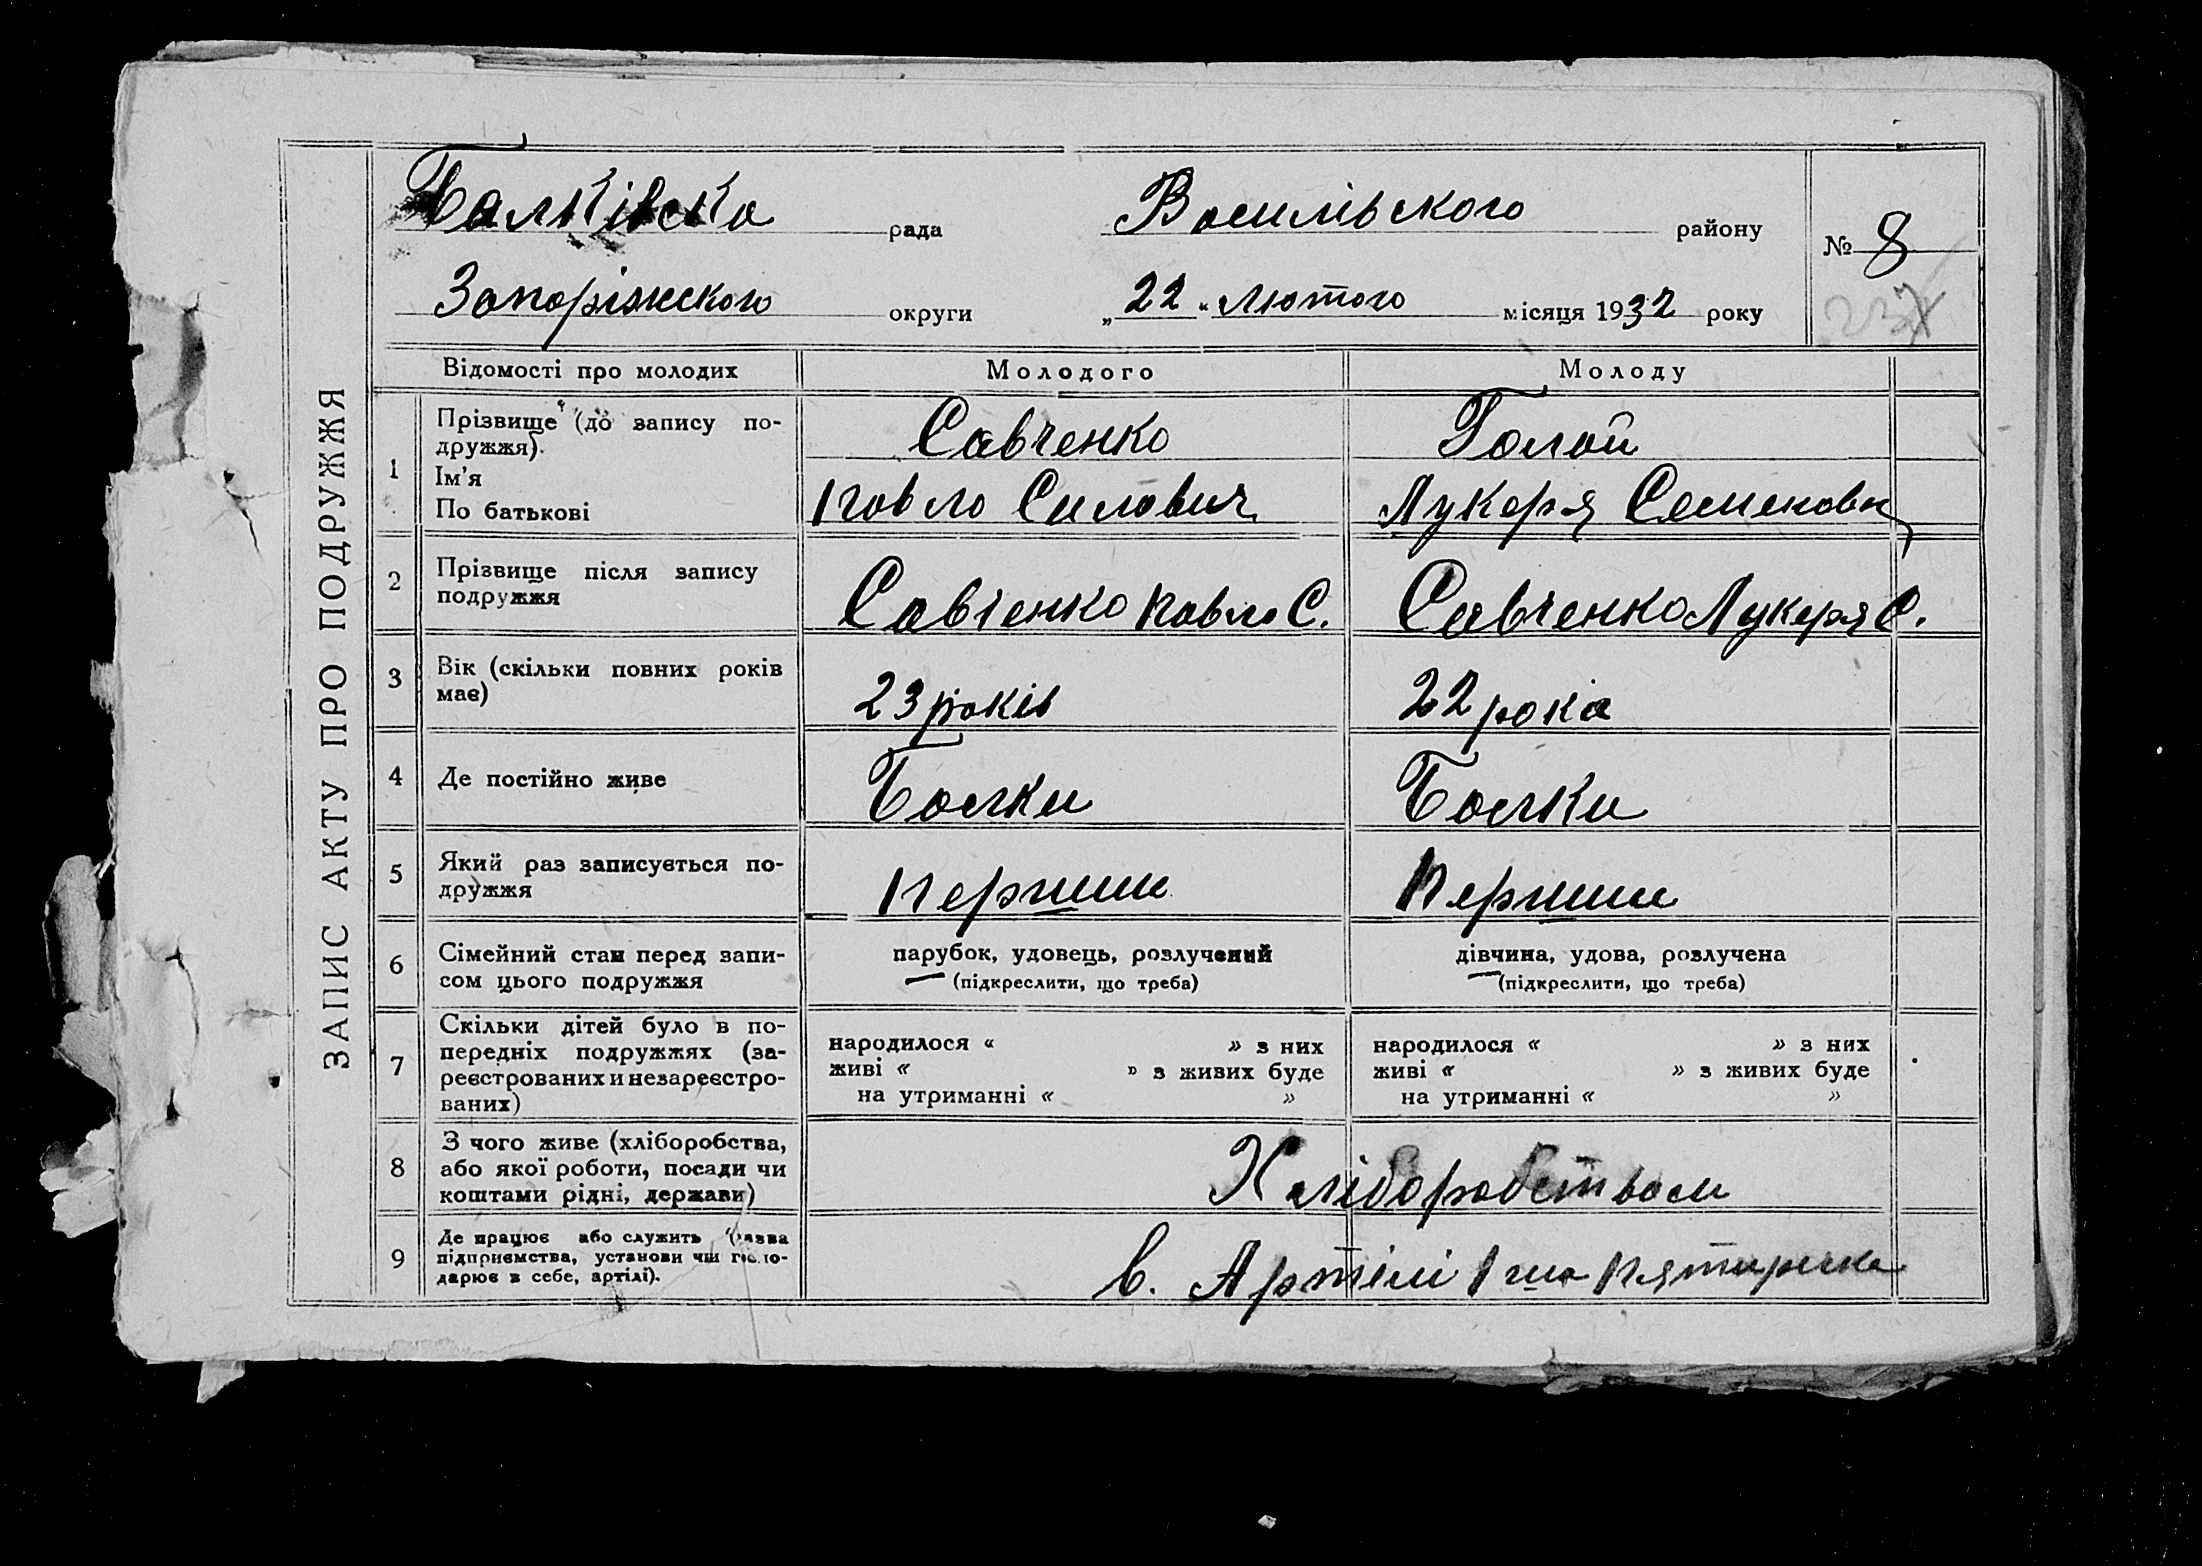 ЗАПИС АКТУ ПРО ПОДРУЖЖЯ
Балківска рада Василівского району № 8
Запоріжского округи „22“ Лютого місяця 1932 року
Відомості про молодих Молодого Молоду
1 Прізвище (до запису по-
дружжя) Савченко Голой
Ім'я
По батькові Павло Силович Лукеря Семеновн
2 Прізвище після запису
подружжя Савченко Павло С. Савченко Лукеря С.
3 Вік (скільки повних років
має) 23 років 22 рока
4 Де постійно живе Балки Балки
5 Який раз записується по-
дружжя перший перший
6 Сімейний стан перед запи-
сом цього подружжя
парубок, удовець, розлучений
(підкреслити, що треба)
дівчина, удова, розлучена
(підкреслити, що треба)
7 Скільки дітей було в по-
передніх подружжях (за-
реєстрованих и незареєстро-
ваних)
народилося « » з них
живі « » з живих буде
на утриманні « »
народилося « » з них
живі « » з живих буде
на утриманні « »
8 З чого живе (хліборобства,
або якої роботи, посади чи
коштами рідні, держави) Хліборобством
9 Де працює або служить (назва
підприємства, установи чи госпо-
дарює в себе, артілі). в. Артілі 1ша Пятирічка